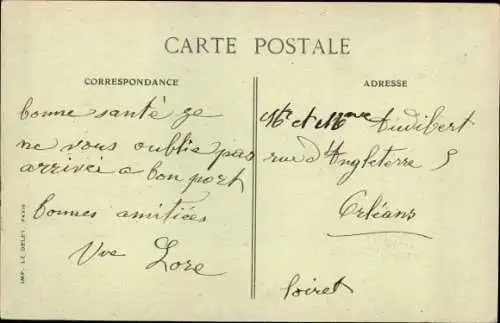 CARTE POSTALE
CORRESPONDANCE
bonne santé ge
ne vous oublie pas
arrivei a bon port
bonnes amitiées
Vve Lore
ADRESSE
Mr et Mme Audibert
rue d'Angleterre 5
Orléans
Loiret
IMP. LE DELEY, PARIS